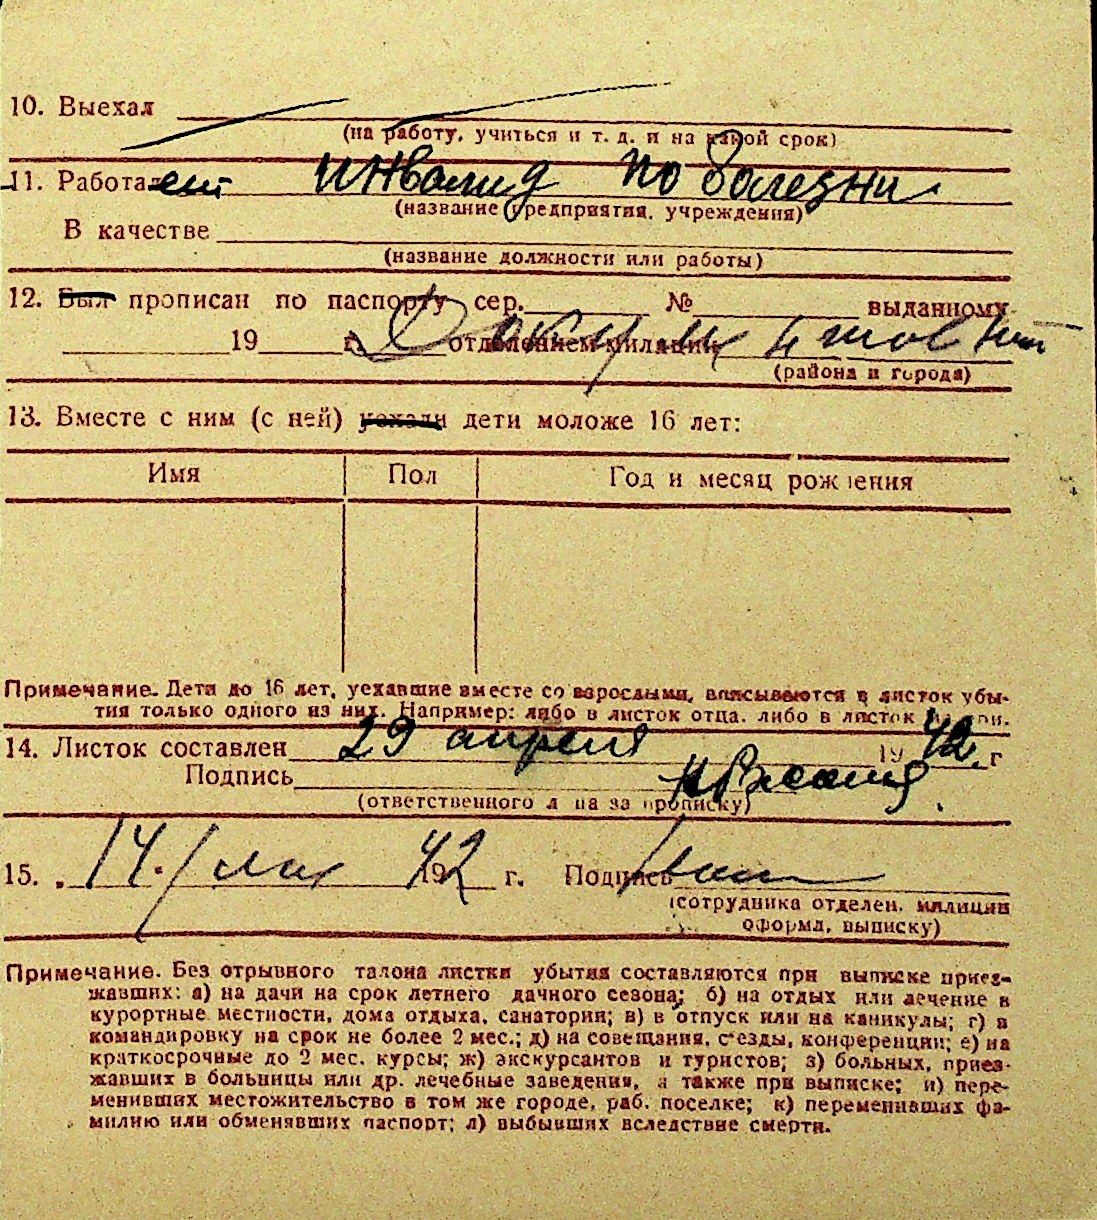 10. Выехал
(на работу, учиться и т. д. и на какой срок)
11. Работает инвалид по болезни
(название предприятия, учреждения)
В качестве
(название должности или работы)
12. Был прописан по паспорту сер. № выданному
19 г. отделением милиции Документов нет
(района и города)
13. Вместе с ним (с ней) уехали дети моложе 16 лет:
Имя Пол Год и месяц рождения
Примечание. Дети до 16 лет, уехавшие вместе со взрослыми, вписываются в листок убы-
тия только одного из них. Например: либо в листок отца, либо в листок
14. Листок составлен 29 апреля 1942 г
Подпись
(ответственного лица за прописку)
15. 14 мая 1942 г. Подпись
(сотрудника отделен. милиции
оформл. выписку)
Примечание. Без отрывного талона листки убытия составляются при выписке приез-
жавших: а) на дачи на срок летнего дачного сезона; б) на отдых или лечение в
курортные местности, дома отдыха, санатории; в) в отпуск или на каникулы; г) в
командировку на срок не более 2 мес.; д) на совещания, съезды, конференции; е) на
краткосрочные до 2 мес. курсы; ж) экскурсантов и туристов; з) больных, приез-
жавших в больницы или др. лечебные заведения, а также при выписке; и) пере-
менивших местожительство в том же городе, раб. поселке; к) переменивших фа-
милию или обменявших паспорт; л) выбывших вследствие смерти.